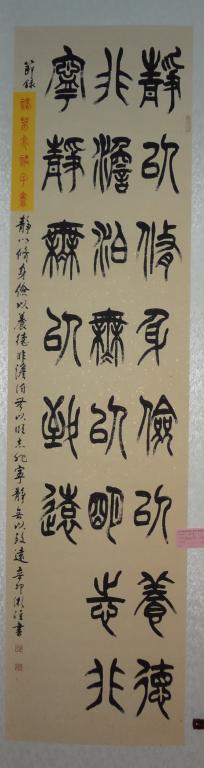 靜以修身儉以養德
非澹泊無以明志非
寧靜無以致遠
節錄
諸葛亮誡子書
靜以修身儉以養德非澹泊無以明志非寧靜無以致遠辛卯
書